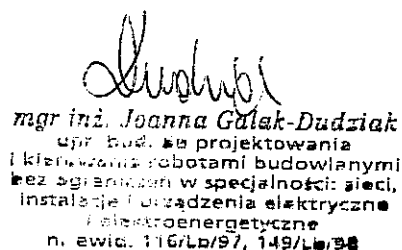 mgr inż. Joanna Gałak-Dudziak
upr. bud. do projektowania
i kierowania robotami budowlanymi
bez ograniczeń w specjalności: sieci,
instalacje i urządzenia elektryczne
i elektroenergetyczne
n. ewid. 116/Lb/97, 149/Lb/98